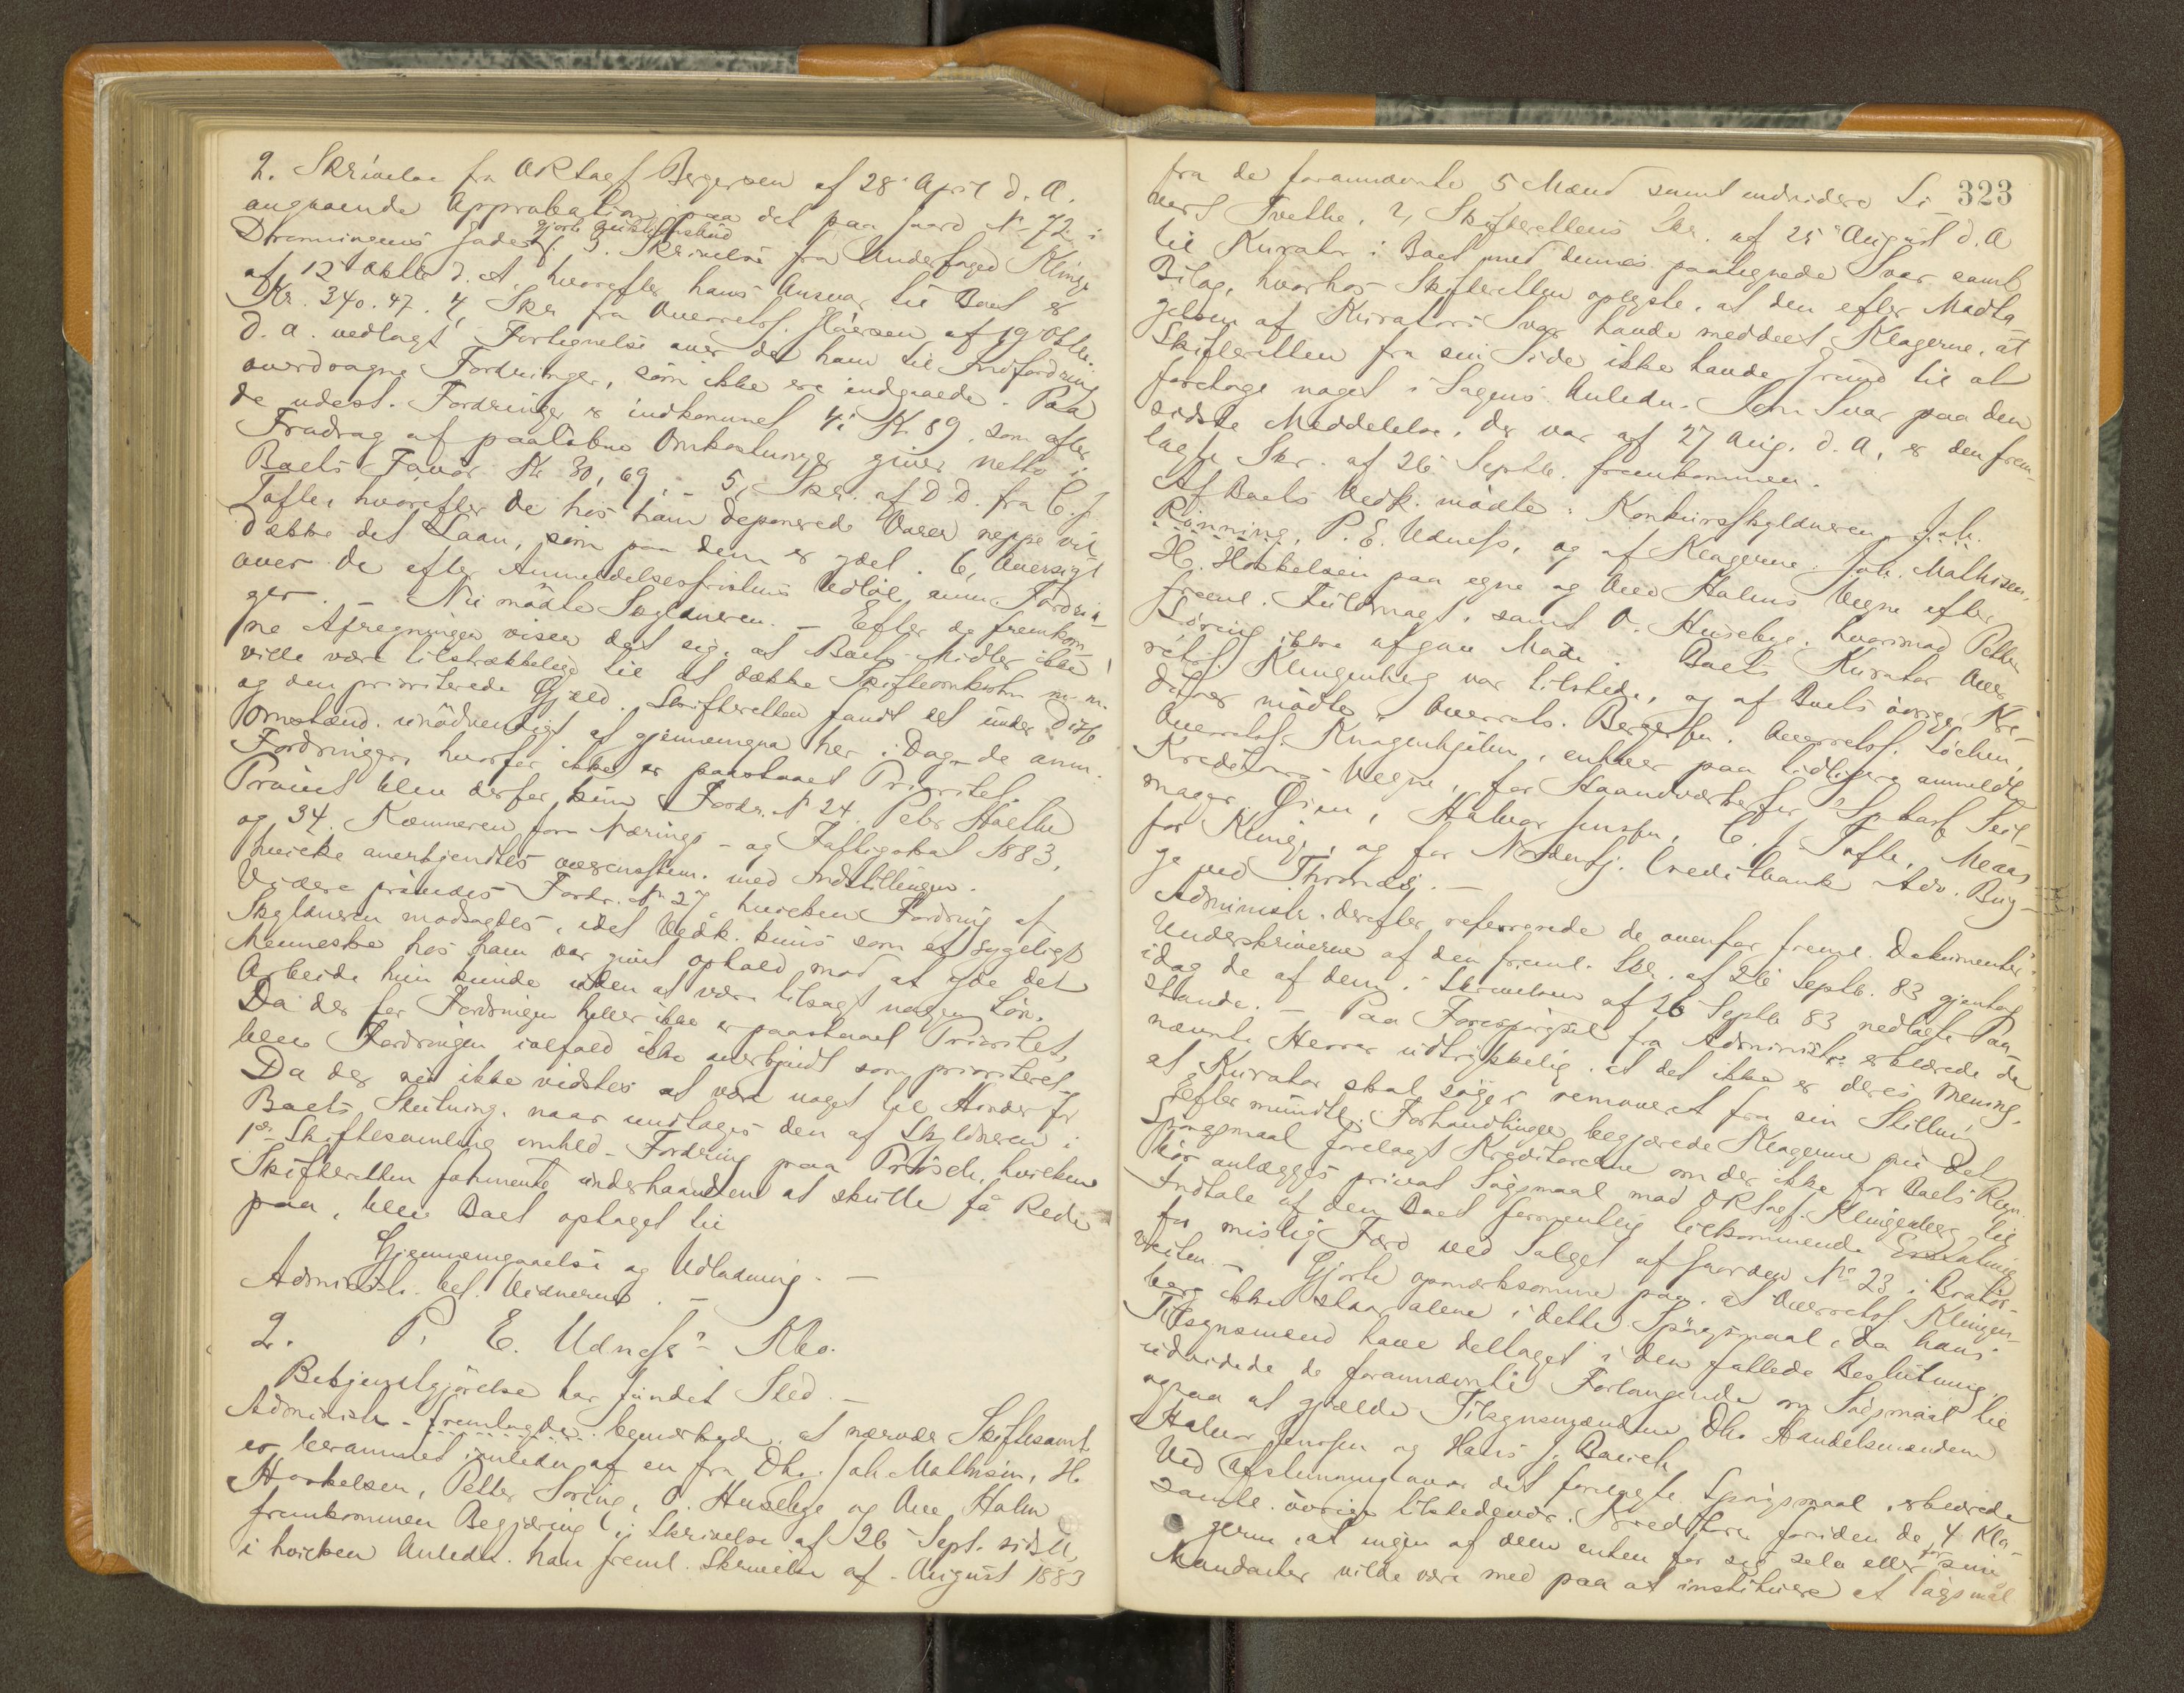 2. Skrivelse fra ORSagf Bergersen af 28 April d. A.
angaaende Approbation paa det paa Gaard No 72 i
Dronningens Gade gjorte Auktionsbud 3. Skrivelse fra Underfoged Klinge
af 12 Oktbr d. A. hvorefter hans Ansvar til Boet er
Kr. 340.47. 4, Skr fra Overretss. Ilversen af 19 Oktbr.
d. A. vedlagt Fortegnelse over det ham til Indfordring
overdragne Fordringer, som ikke ere indgaaede. Paa
de udest. Fordringer er indkommet 4: Kr 89, som efter
Fradrag af paaløbne Omkostninger giver netto i
Boets Favør Kr 30,69. - 5, Skr. af D.D. fra C. J.
Tafle, hvorefter de hos ham deponerede Varer neppe vil
dække det Laan, som paa dem er ydet. 6, Oversigt
over de efter Anmeldelsesfristens Udløb anm. Fordrin-
ger. - Nu mødte Skyldneren. - Efter de fremkom-
ne Afregninger viser det sig, at Boets Midler ikke
ville være tilstrækkelige til at dække Skifteomkostn m. m.
og den prioriterede Gjæld. Skifteretten fandt det under disse
Omstænd. unødvendigt at gjennemgaa her i Dag de anm.
Fordringer, hvorfor ikke er paastaaet Prioritet.
Prøvet blev derfor kun Fordr. No 24. Peter Stœthe
og 34. Kæmneren for Nærings- og Fattigskat 1883,
hvilke anerkjendtes overensstem. med Indstillingen.
Videre prøvedes Fordr. No 27 hvilken Fordring af
Skyldneren modsagdes, idet Vedk. kuns som et sygeligt
Menneske hos ham var givet ophold mod at yde det
Arbeide hun kunde uden at være tilsagt nogen Løn.
Da der for Fordringen heller ikke er paastaaet Prioritet,
blev Fordringen ialfald ikke anerkjendt som prioriteret.
Da der nu ikke vidstes at være noget til Hinder for
Boets Slutning, naar undtages den af Skyldneren i
1ste Skiftesamling omhld. Fordring paa Prøsch, hvilken
Skifteretten formente underhaanden at skulle få Rede
paa, blev Boet optaget til
Gjennemgaaelse og Udlodning. -
Administr. bet. Vidnerne. -
2. P. E. Udness's Kbo.
Bekjendtgjørelse har fundet Sted. -
Administr. fremlagde bemærkede, at nærvær Skiftesaml.
er berammet i Anledn af en fra Dhr. Joh Mathisen, H.
Haakelsen, Petter Soring, O. Husebye og Ane Halm
fremkommen Begjæring i Skrivelse af 26 Sept. sidstl,
i hvilken Anledn. han freml. Skrivelse af - August 1883
323
fra de forannævnte 5 Mænd samt endvidere Si-
vert Tvethe. 2, Skifterettens Skr. af 25 August d. A
til Kurator i Boet med dennes paategnede Svar samt
Bilag, hvorhos Skifteretten oplyste, at den efter Modta-
gelsen af Kurators Svar havde meddelt Klagerne, at
Skifteretten fra sin Side ikke havde Grund til at
foretage noget i Sagens Anledn. Som Svar paa den
sidste Meddelelse, der var af 27 Aug. d. A, er den frem-
lagte Skr. af 26 Septbr. fremkommen.
Af Boets Vedk. mødte: Konkursskyldneren Joh.
Rönning, P. E. Udness, og af Klagerne Joh. Mathisen,
H. Haakelsen paa egne og Ane Halms Vegne efter
freml. Fuldmagt, samt O. Husebye, hvorimod Petter
Soring ikke afgav Møde. Boets Kurator Over-
retss. Klingenberg var tilstede, og af Boets øvrige Kre-
ditorer mødte: Overrets. Bergersen. Overretss. Löchen,
Overretss. Knagenhjelm, enhver paa tidligere anmeldte
Kreditorers Vegne, for Haandværkerfor. Spkasse Seil-
mager Qvam, Halvor Jenssen, C. J. Tafle, Meaas
for Klinge, og for Nordenfj. Creditbank Adv. Bug-
ge ved Thronæs. -
Administr. derefter refererede de ovenfor freml. Dokumenter.
Underskriverne af den freml. Skr. af 26 Septbr. 83 gjentog
idag de af dem i Skrivelsen af 26 Septbr 83 nedlagte Paa-
stande. - Paa Forespørgsel fra Administr. erklærede de
nævnte Herrer udtrykkelig, at det ikke er deres Mening,
at Kurator skal søges removeret fra sin Stilling
Efter mundtl. Forhandlinger begjærede Klagerne nu det
Spørgsmaal forelagt Kreditorerne om der ikke for Boets Regn.
bør anlægges privat Søgsmaal mod ORSagf. Klingenberg til
Indtale af den Boet formentlig tilkommende Erstatning
for mislig Færd ved Salget af Gaarden No 23 i Bratør-
veiten. - Gjorte opmærksomme paa, at Overretss. Klingen-
berg ikke staar alene i dette Spørgsmaal, da hans
Tilsynsmænd have deltaget i den fattede Beslutning,
udvidede de forannævnte Forlangende om Søgsmaal til
ogsaa at gjælde Tilsynsmændene Dhr. Handelsmændene
Halvor Jenssen og Hans J. Bauck.
Ved Afstemning over det forelagte Spørgsmaal, erklærede
samtl. øvrige tilstedevær. Kreditorer foruden de 4 Kla-
gerne, at ingen af dem enten for sig selv eller for sine
Mandanter vilde være med paa at instituere et Søgsmål